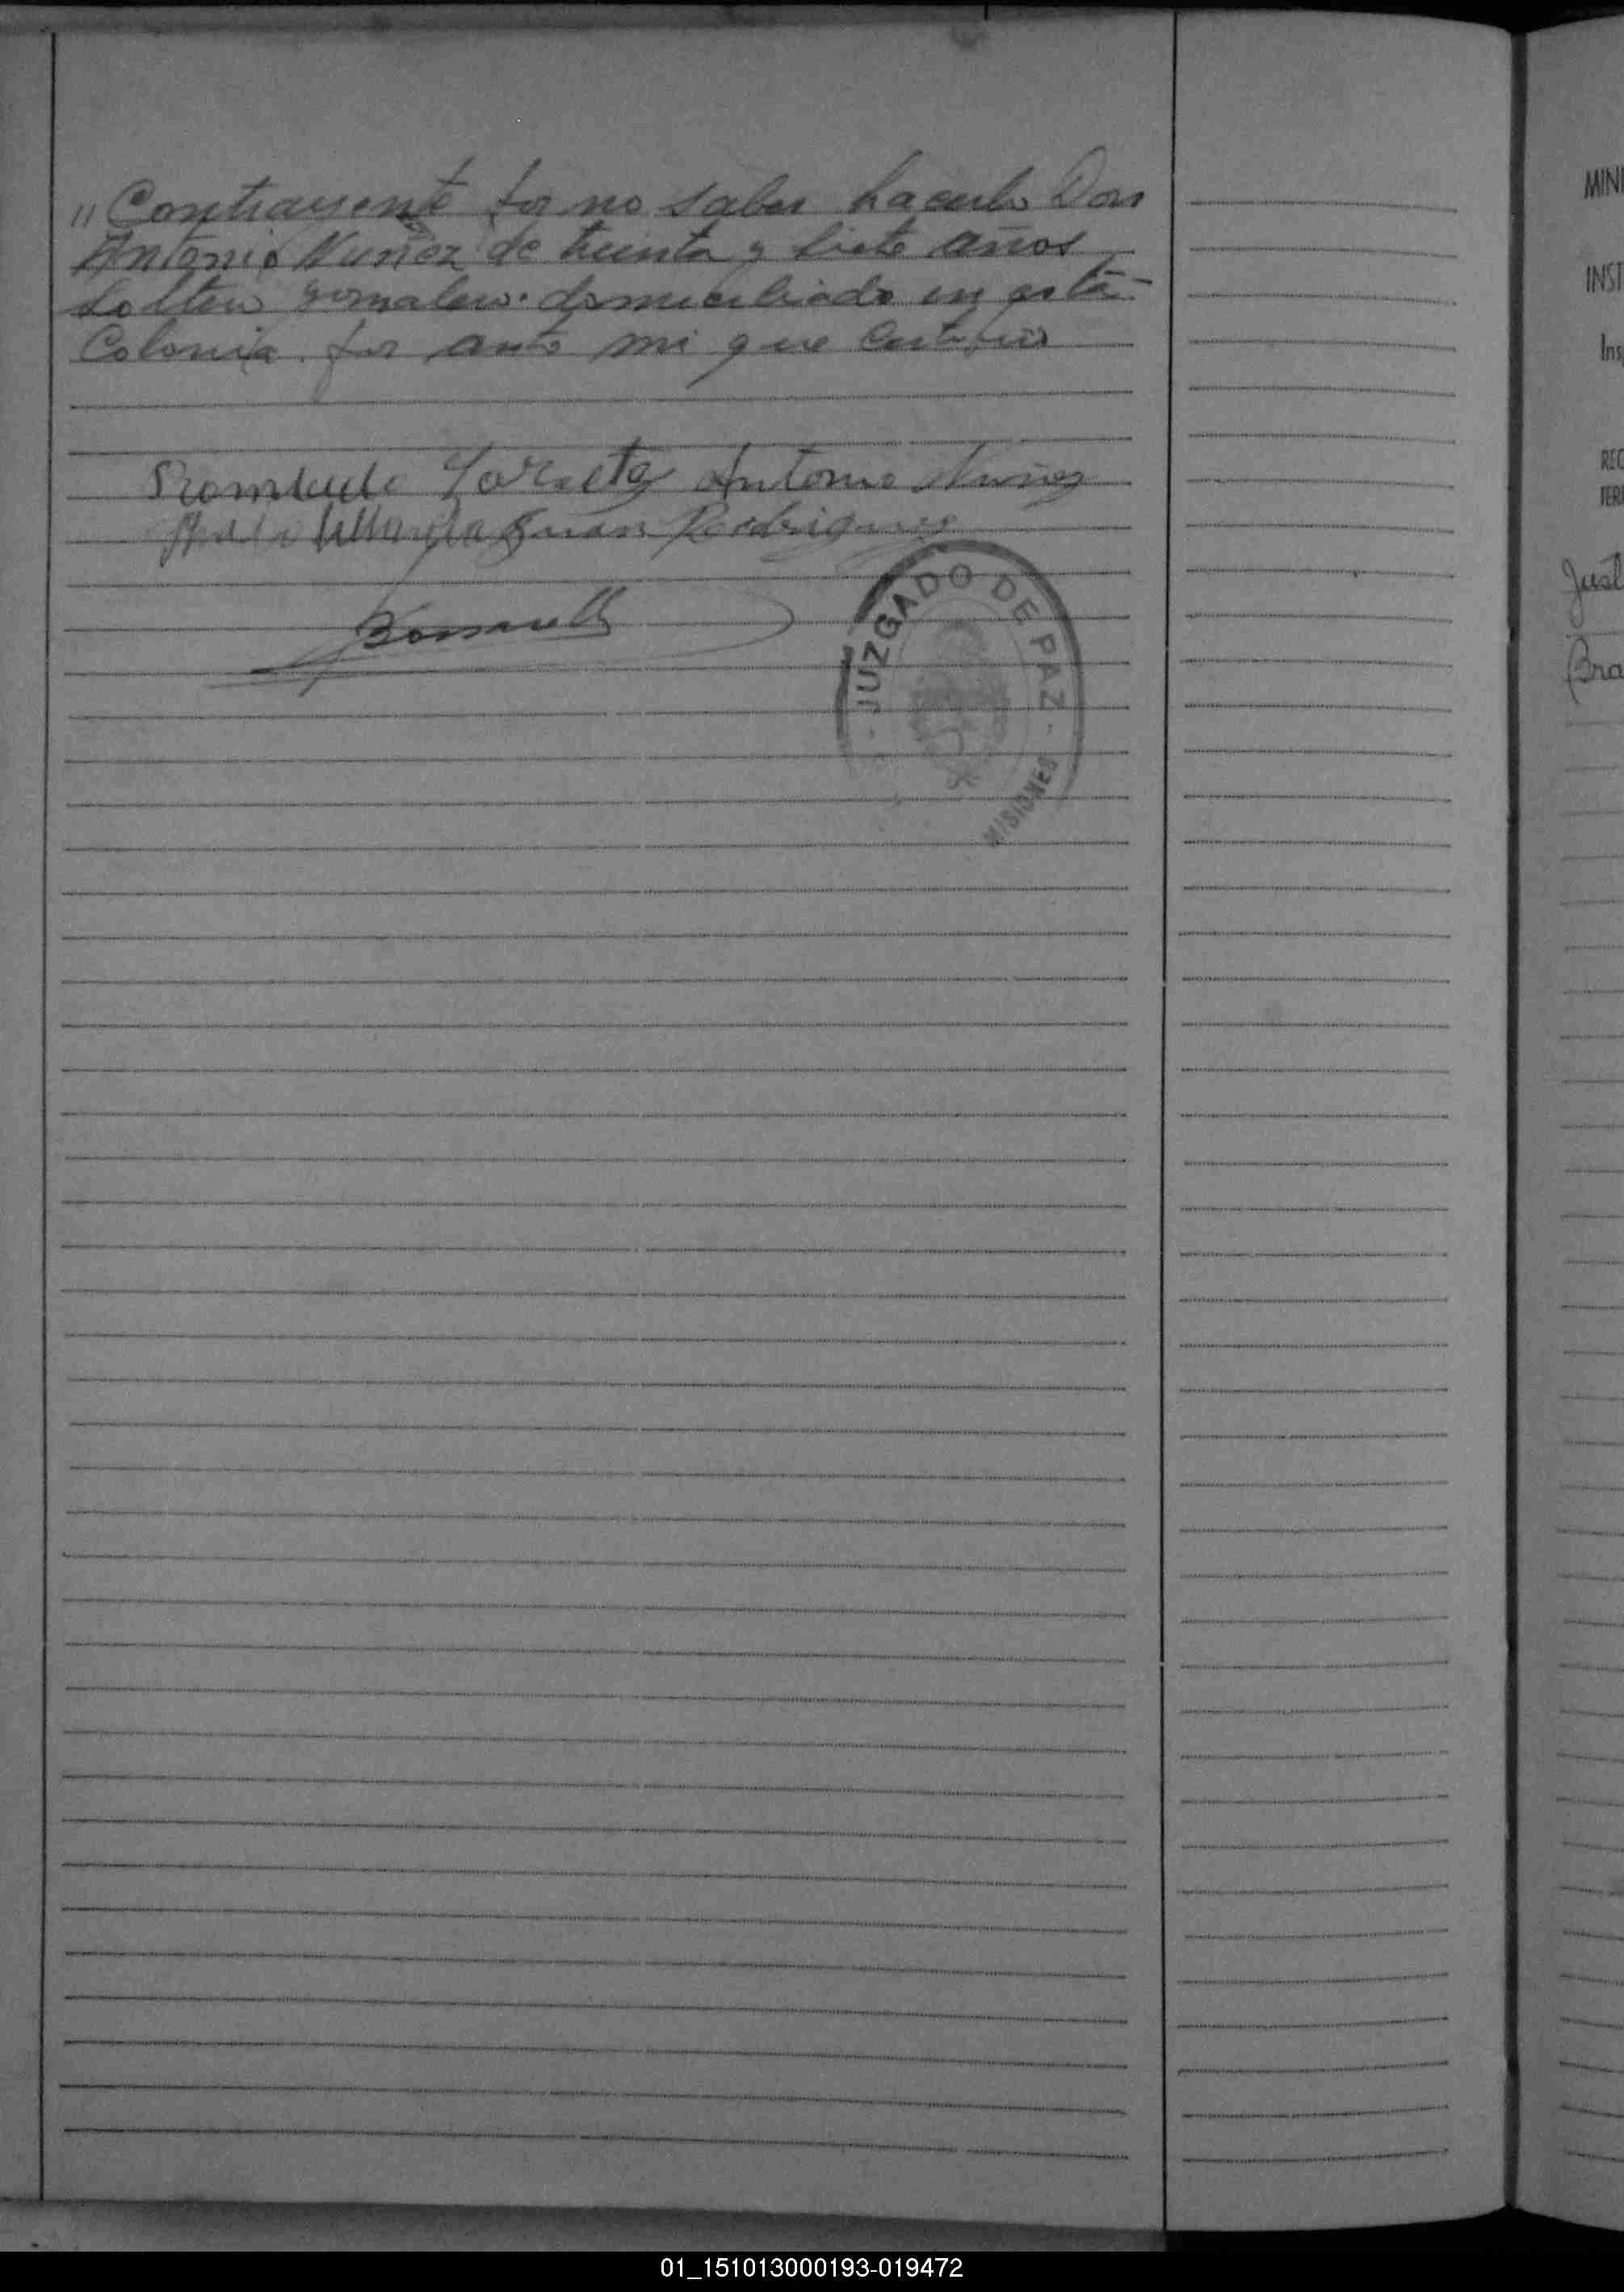 " Contrayente por no saber hacerlo Don
Antonio Nuñez de treinta y siete años
soltero jornalero. domiciliado en esta
Colonia. por ante mi que Certifico
Antonio Nuñez
Juan Rodriguez
- JUZGADO DE PAZ -
MISIONES
MINI
INST
Ins
REG
TERR
Just
Bra
01_151013000193-019472